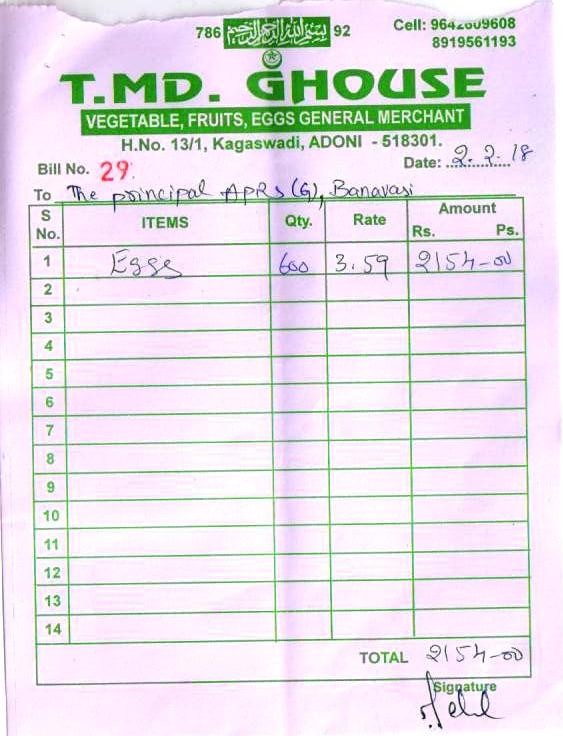 786 بسم الله الرحمن الرحيم 92
Cell: 9642609608
8919561193
T.MD. GHOUSE
VEGETABLE, FRUITS, EGGS GENERAL MERCHANT
H.No. 13/1, Kagaswadi, ADONI - 518301.
Bill No. 29. Date: 2.2.18
To The principal APRS (G), Banavasi
S No. ITEMS Qty. Rate Amount Rs. Ps.
1 Eggs 600 3.59 2154-00
2
3
4
5
6
7
8
9
10
11
12
13
14
TOTAL 2154-00
Signature